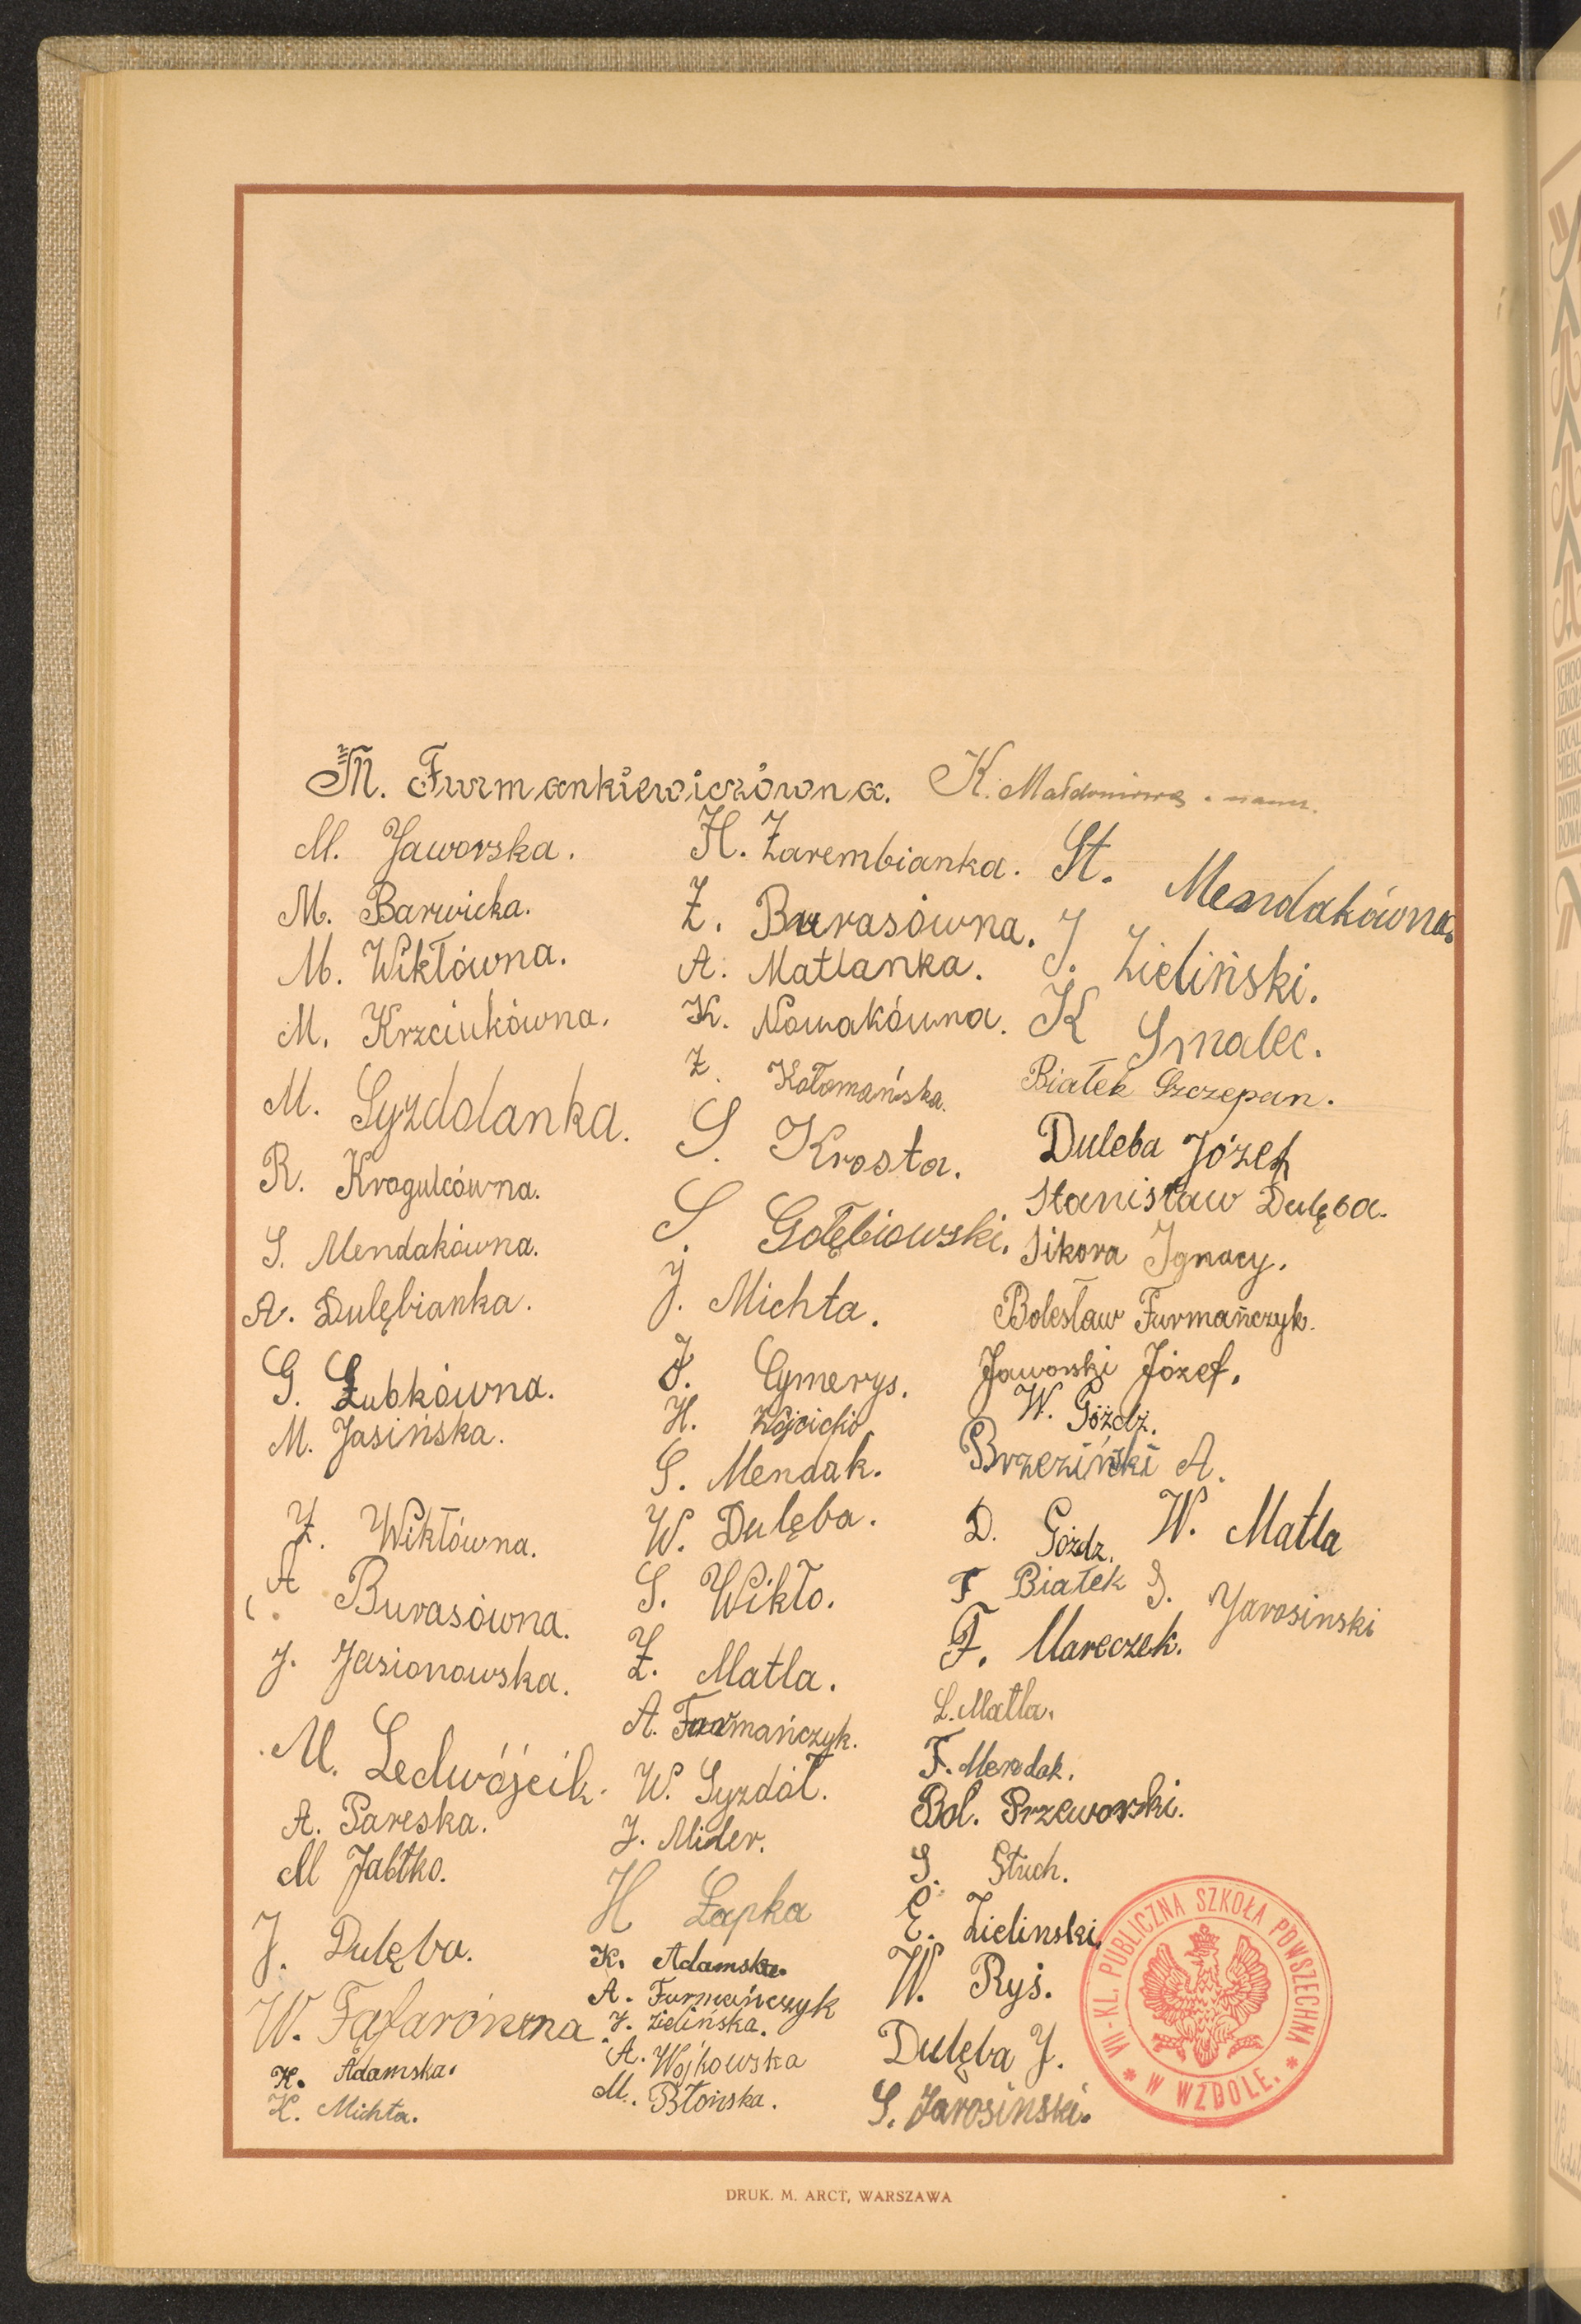 M. Furmankiewiczówna. K.
M. Jaworska.
M. Barwicka.
M. Wikłówna.
M. Krzciukówna.
M. Syzdolanka.
R. Krogulcówna.
S. Mendakówna.
A. Dulębianka.
G. Łubkówna.
M. Jasińska.
Z. Wikłówna.
A. Burasówna.
J. Jasionowska.
M. Ledwójcik.
A. Pareska.
M Jabłko.
J. Dulęba.
W. Fąfarówna.
K. Adamska.
K. Michta.
H. Zarembianka.
Z. Burasówna.
A. Matlanka.
K. Nowakówna.
Z. Kołomańska.
S. Krosta.
S. Gołębiowski.
J. Michta.
J. Cymerys.
H. Wójcicki
S. Mendak.
W. Dulęba.
S. Wikło.
Z. Matla.
A. Furmańczyk.
W. Syzdół.
J. Mider.
H Łapka
K. Adamska.
A. Furmańczyk
J. Zielińska.
A. Wojkowska
M. Błońska.
St. Mendakówna.
J. Zieliński.
K Smalec.
Białek Szczepan.
Duleba Józef
Stanisław Dulęba.
Sikora Ignacy.
Bolesław Furmańczyk.
Jaworski Józef.
W. Góźdź.
Brzeziński A.
D. Góźdz. W. Matla
F Białek S. Jarosinski
F. Mareczek.
L. Matla.
F. Mendak.
Bol. Przeworski.
S. Stuch.
E. Zielinski.
W. Ryś.
Dulęba J.
S. Jarosiński.
VII-KL. PUBLICZNA SZKOŁA POWSZECHNA
* W WZDOLE. *
DRUK. M. ARCT, WARSZAWA